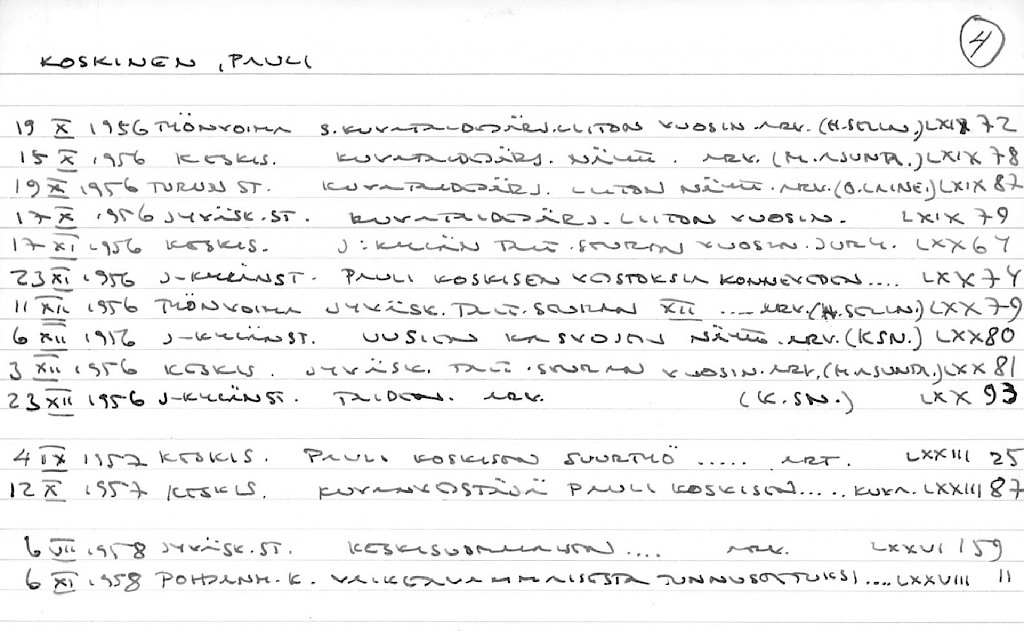 4
KOSKINEN, PAULI
19 X 1956 TYÖNVOIMA S.KUVATAIDEJÄRJ.LIITON VUOSIN. ARV. (H.SELIN.) LXIX 72
15 X 1956 KESKIS. KUVATAIDEJÄRJ. NÄYTT. ARV. (M.ASUNTA.) LXIX 78
19 X 1956 TURUN ST. KUVATAIDEJÄRJ. LIITON NÄYTT. ARV. (O.LAINE.) LXIX 87
17 X 1956 JYVÄSK.ST. KUVATAIDEJÄRJ. LIITON VUOSIN. LXIX 79
17 XI 1956 KESKIS. J:KYLÄN TAIT.SEURAN VUOSIN. JURY. LXX 64
23 XI 1956 J-KYLÄNST. PAULI KOSKISEN VEISTOKSIA KONNEVEDEN.... LXX 74
11 XII 1956 TYÖNVOIMA JYVÄSK. TAIT.SEURAN XII ... ARV. (H.SELIN.) LXX 79
6 XII 1956 J-KYLÄNST. UUSIEN KASVOJEN NÄYTT. ARV. (KSN.) LXX 80
3 XII 1956 KESKIS. JYVÄSK. TAIT.SEURAN VUOSIN. ARV. (M.ASUNTA.) LXX 81
23 XII 1956 J-KYLÄNST. TAIDEN. ARV. (K.SN.) LXX 93
4 IX 1957 KESKIS. PAULI KOSKISEN SUURTYÖ ..... ART. LXXIII 25
12 X 1957 KESKIS. KUVANVEISTÄJÄ PAULI KOSKISEN..... KUVA. LXXIII 87
6 VII 1958 JYVÄSK.ST. KESKISUOMALAISEN .... ARV. LXXVI 159
6 XI 1958 POHJANM.K. VAIKEAVAMMAISESTA TUNNUSTETUKSI .... LXXVIII 11